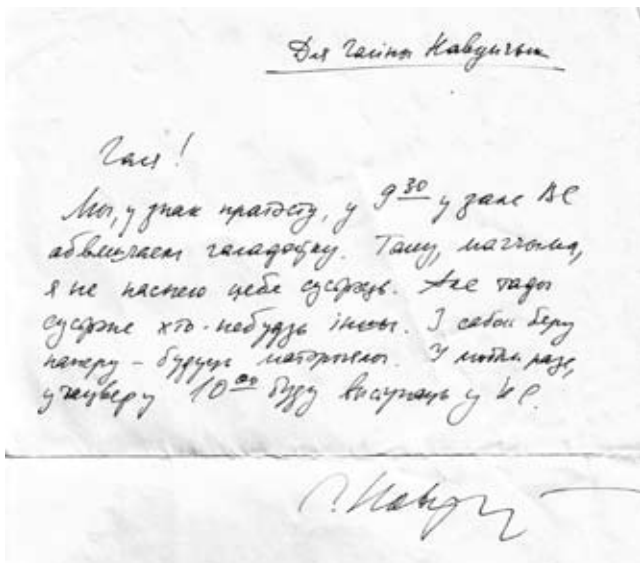 Для Галіны Навумчык
Галя!
Мы, у знак пратэсту, у 9 30 у зале ВС
абвяшчаем галадоўку. Таму, магчыма,
я не паспею цябе сустрэць. Але тады
сустрэне хто-небудзь іншы. З сабой бяру
паперу – будуць матэрыялы. У любым разе,
у чацвер у 10 00 буду выступаць у ВС.
С. Навум